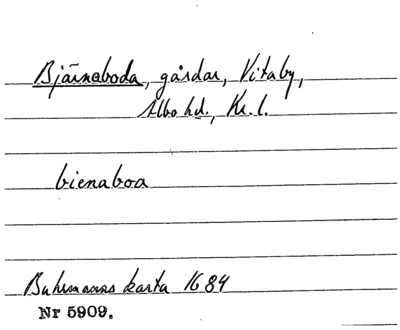 Bjärnaboda, gårdar, Vitaby,
Albo hd., Kr. l.
bienaboa
Buhrmanns karta 1684
Nr 5909.